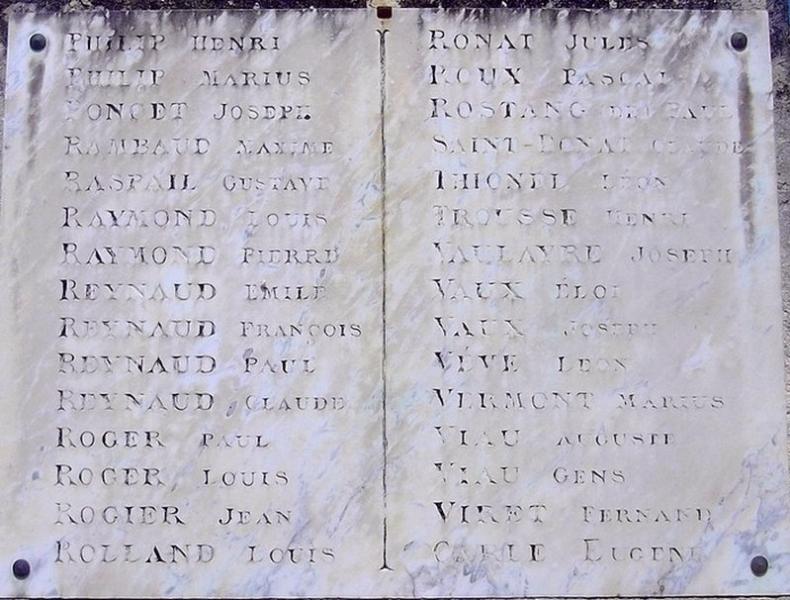 PHILIP HENRI
PHILIP MARIUS
PONCET JOSEPH
RAMBAUD MAXIME
RASPAIL GUSTAVE
RAYMOND LOUIS
RAYMOND PIERRE
REYNAUD EMILE
REYNAUD FRANÇOIS
REYNAUD PAUL
REYNAUD CLAUDE
ROGER PAUL
ROGER LOUIS
ROGIER JEAN
ROLLAND LOUIS
RONAT JULES
ROUX PASCAL
ROSTANG PAUL
SAINT-DONAT CLAUDE
THIONEL LÉON
TROUSSE HENRI
VAULAYRE JOSEPH
VAUX ÉLOI
VAUX JOSEPH
VÈVE LEON
VERMONT MARIUS
VIAU AUGUSTE
VIAU GENS
VIRET FERNAND
CARLE EUGENE